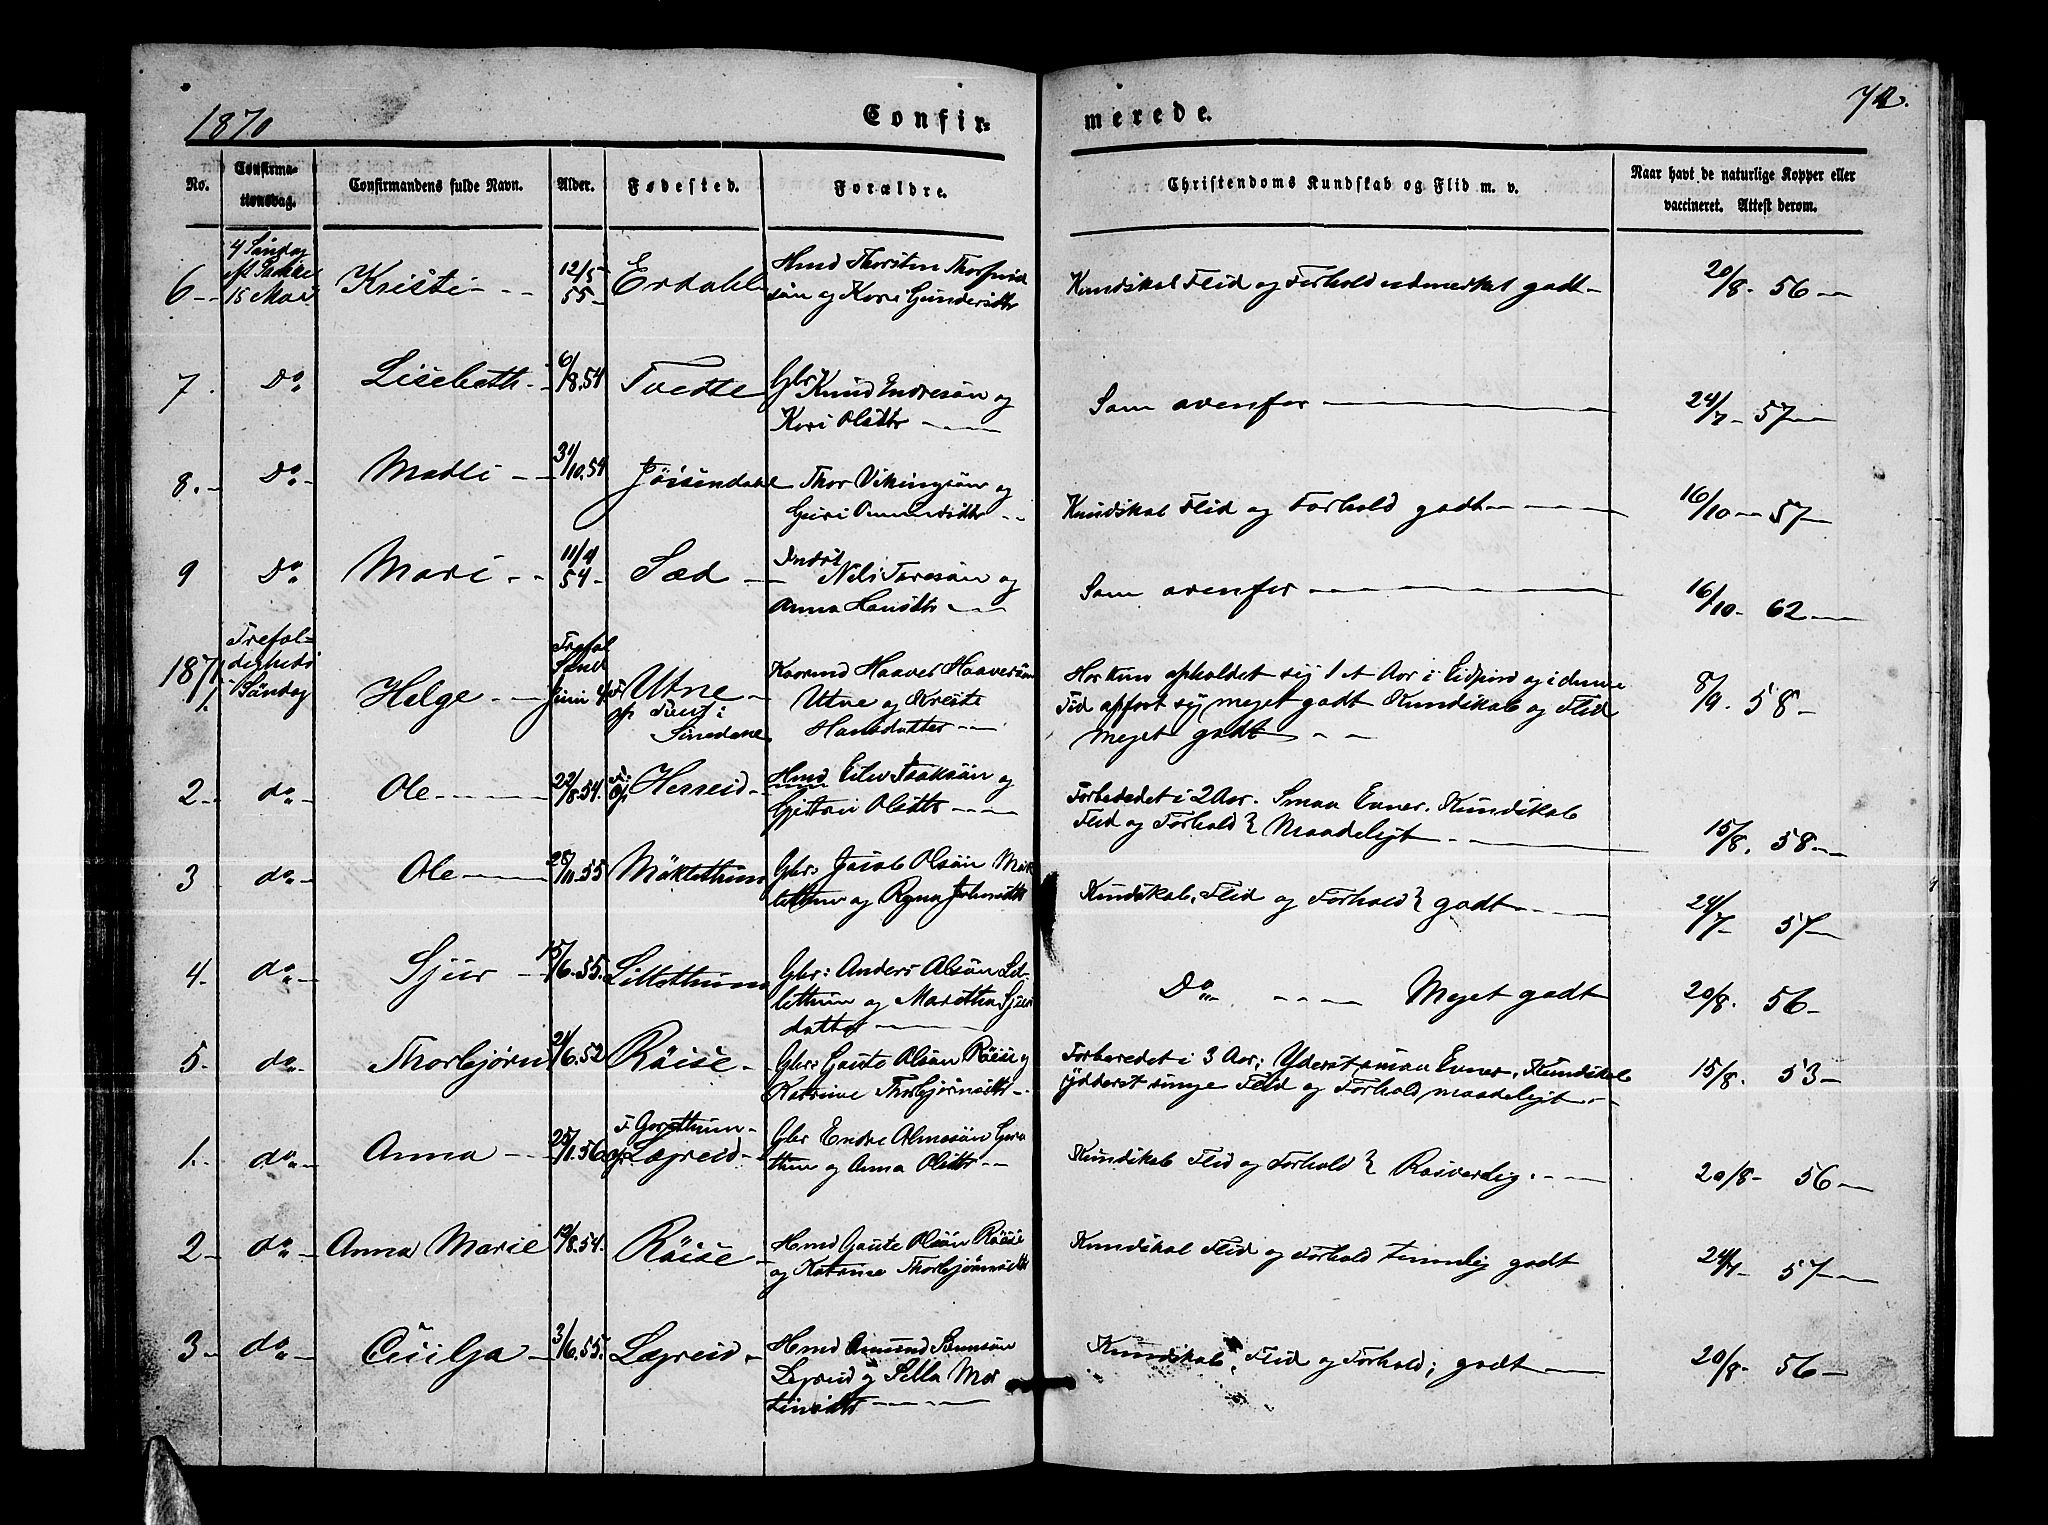 1870
Confir=
merede.
72.
No.
Confirma-
tionsdag.
Confirmandens fulde Navn.
Alder.
Fødested.
Forældre.
Christendoms Kundskab og Flid m. v.
Naar havt de naturlige Kopper eller
vaccineret. Attest derom.
6 4 Søndag
15 Mai Kristi 12/5 55 Erdahl Hmd Thorsten
søn og Kari Gundersdtr Kundskab Flid og Forhold udmerket godt 20/8 56
7. Do Lisebeth 6/8.54 Tvedte Gbr Knud Endresøn og
Kari Olsdtr Som ovenfor 24/7 57
8. Do Madli 31/10.54 Jøisendahl Thor Vikingsøn og
Guri Kundskab Flid og Forhold godt 16/10 57
9 Do Mari 11/4 54 Sæd Inderst
Nils Toresøn og
Anna Hansdtr Som ovenfor 16/10 62
1871 Trefol=
digheds
Søndag
1. Helge Juni 4 Utne Kaarmd Haaver Haaversøn
Utne og
Hansdatter Har kun opholdet sig 1 et Aar i Eidfjord og i denne
Tid opført sig meget godt Kundskab og Flid
Meget godt 8/9 58
2 do Ole 22/8.54. Herreid Hmd Eilev Isaksøn og
Olsdtr Forberedet i 2 Aar. Smaa Evner. Kundskab
Flid og Forhold } Maadeligt 15/8. 58
3 do Ole 25/11.55 Møklethum Gbr: Jacob Olsøn Møk
lethum og Kundskab, Flid og Forhold } godt 24/7 57
4. do Sjur 15/6.55. Lillethum Gbr: Anders Olsøn Lil
lethum og Maretha Sjur
datter Do Meget godt 20/8. 56
5. do Thorbjørn 21/6.52 Røise Gbr: Gaute Olsøn Røise og
Katrine Thorbjørnsdtr Forberedet i 3 Aar; Yderst smaa Evner, Kundskab
ydderst ringe Flid og Forhold maadeligt 15/8. 53
1. do Anna 25/1.56 F. Garethum
Op. Lægreid Gbr Endre
thum og Anna Olsdtr Kundskab Flid og Forhold } Rosværdig. 20/8 56
2 do Anna Marie 19/8.54. Røise Hmd Gaute Olsøn Røise
og Katrine Thorbjørnsdtr Kundskab Flid og Forhold temmelig godt 24/7 57
3 do 3/6.55. Lægreid Hmd Amund
Legreid og Sella Mor
tinsdtr Kundskab, Flid og Forhold; godt 20/8 56